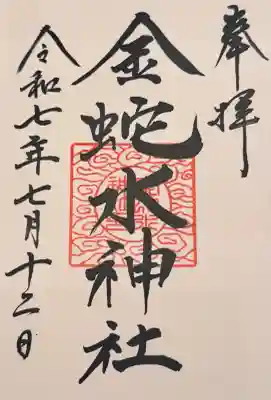 奉拝
金蛇水神社
令和七年七月十二日